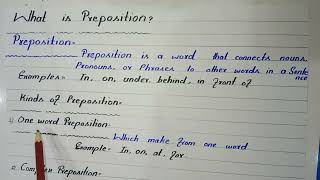 What is Preposition?
Preposition-
Preposition is a word that connects nouns.
Pronouns. or Phrases to other words in a Sentence
Examples= In, on, under, behind, in front of
Kinds of Preposition-
1) One word Preposition-
Which make from one word
Example- In, on, at, for
2) Complex Preposition-